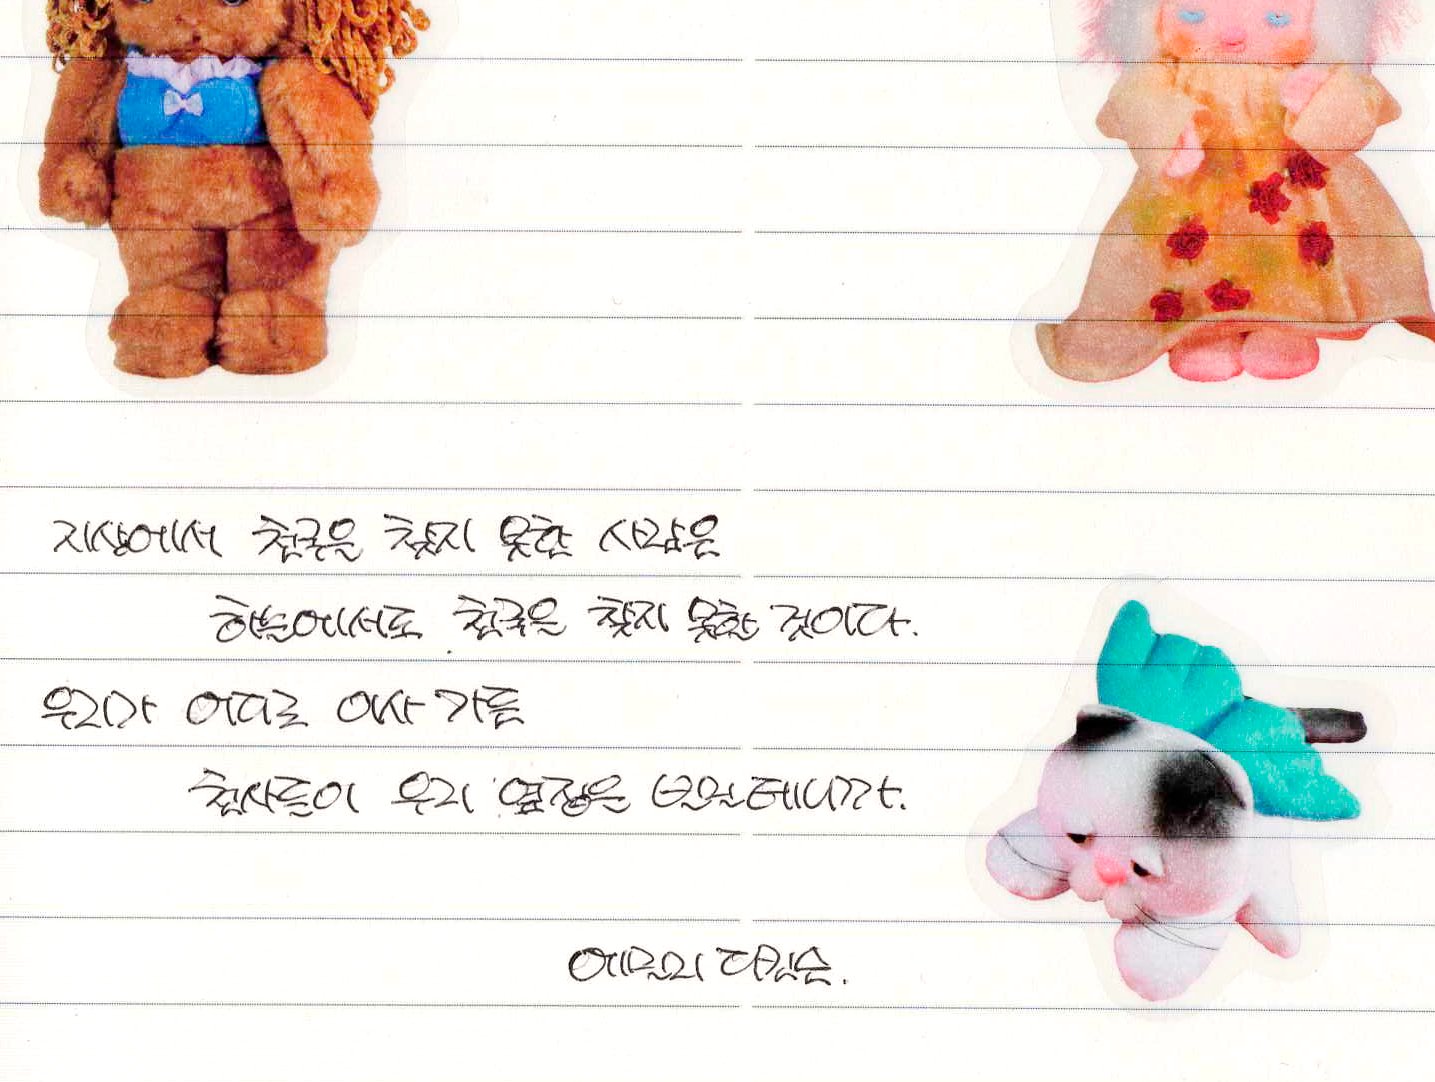 지상에서 천국을 찾지 못한 사람은
하늘에서도 천국을 찾지 못할 것이다.
우리가 어디로 이사 가든
천사들이 우리 옆집을 빌릴 테니까.
에밀리 디킨슨.